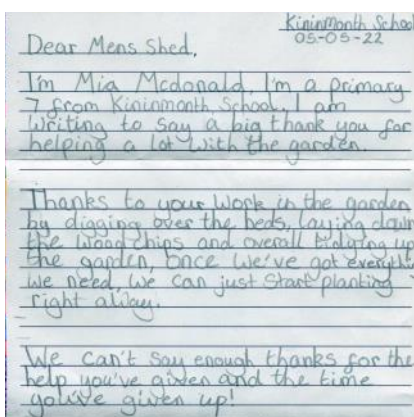 Kininmonth School
05-05-22
Dear Mens Shed,
I'm Mia Mcdonald, I'm a primary
7 from Kininmonth School. I am
writing to say a big thank you for
helping a lot with the garden.
Thanks to your work in the garden
by digging over the beds, laying down
the wood chips and overall tidying up
the garden, once we've got everythi
we need, we can just start planting
right away.
We can't say enough thanks for the
help you've given and the time
you've given up!